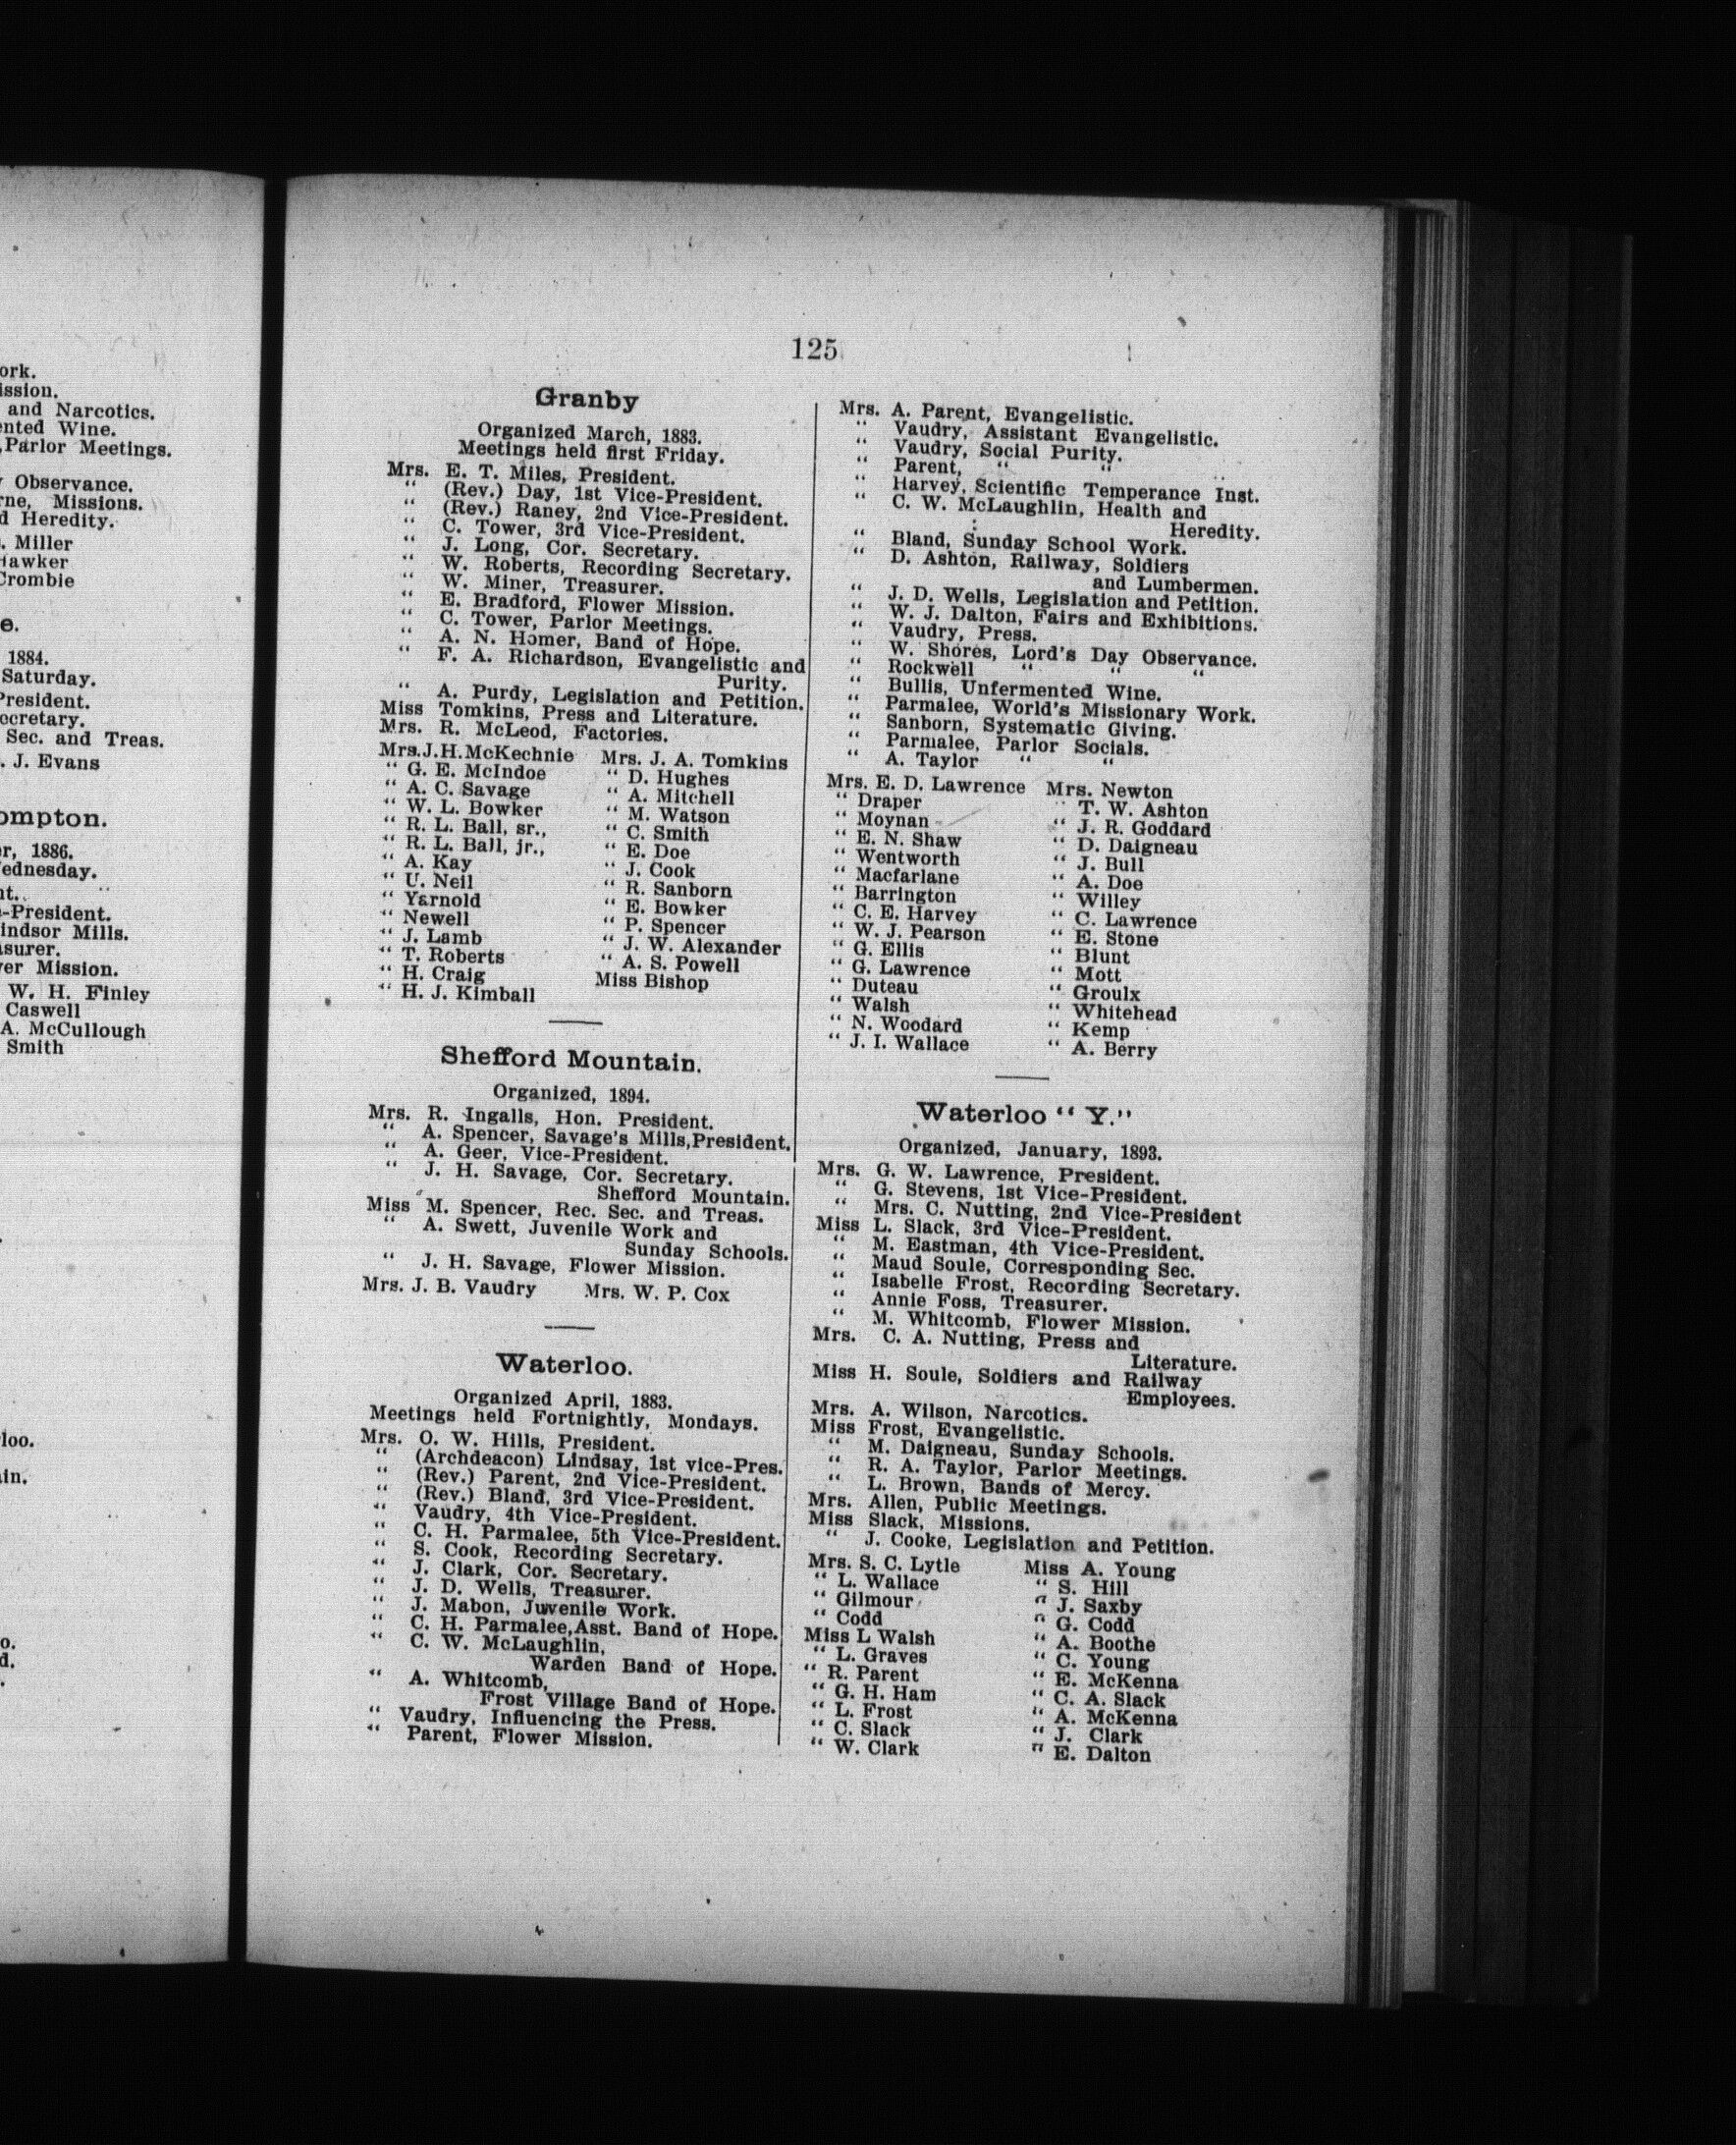 ork.
ission.
and Narcotics.
ented Wine.
Parlor Meetings.
Observance.
rne, Missions.
d Heredity.
. Miller
Hawker
Crombie
e.
1884.
Saturday.
President.
ecretary.
Sec. and Treas.
. J. Evans
ompton.
er, 1886.
ednesday.
nt.
-President.
indsor Mills.
asurer.
er Mission.
W. H. Finley
Caswell
A. McCullough
Smith
loo.
in.
o.
d.
125
Granby
Organized March, 1883.
Meetings held first Friday.
Mrs. E. T. Miles, President.
" (Rev.) Day, 1st Vice-President.
" (Rev.) Raney, 2nd Vice-President.
" C. Tower, 3rd Vice-President.
" J. Long, Cor. Secretary.
" W. Roberts, Recording Secretary.
" W. Miner, Treasurer.
" E. Bradford, Flower Mission.
" C. Tower, Parlor Meetings.
" A. N. Homer, Band of Hope.
" F. A. Richardson, Evangelistic and
Purity.
" A. Purdy, Legislation and Petition.
Miss Tomkins, Press and Literature.
Mrs. R. McLeod, Factories.
Mrs. J. H. McKechnie Mrs. J. A. Tomkins
" G. E. McIndoe " D. Hughes
" A. C. Savage " A. Mitchell
" W. L. Bowker " M. Watson
" R. L. Ball, sr., " C. Smith
" R. L. Ball, jr., " E. Doe
" A. Kay " J. Cook
" U. Neil " R. Sanborn
" Yarnold " E. Bowker
" Newell " P. Spencer
" J. Lamb " J. W. Alexander
" T. Roberts " A. S. Powell
" H. Craig Miss Bishop
" H. J. Kimball
Shefford Mountain.
Organized, 1894.
Mrs. R. Ingalls, Hon. President.
" A. Spencer, Savage's Mills, President.
" A. Geer, Vice-President.
" J. H. Savage, Cor. Secretary.
Shefford Mountain.
Miss M. Spencer, Rec. Sec. and Treas.
" A. Swett, Juvenile Work and
Sunday Schools.
" J. H. Savage, Flower Mission.
Mrs. J. B. Vaudry Mrs. W. P. Cox
Waterloo.
Organized April, 1883.
Meetings held Fortnightly, Mondays.
Mrs. O. W. Hills, President.
" (Archdeacon) Lindsay, 1st vice-Pres.
" (Rev.) Parent, 2nd Vice-President.
" (Rev.) Bland, 3rd Vice-President.
" Vaudry, 4th Vice-President.
" C. H. Parmalee, 5th Vice-President.
" S. Cook, Recording Secretary.
" J. Clark, Cor. Secretary.
" J. D. Wells, Treasurer.
" J. Mabon, Juvenile Work.
" C. H. Parmalee, Asst. Band of Hope.
" C. W. McLaughlin,
Warden Band of Hope.
" A. Whitcomb,
Frost Village Band of Hope.
" Vaudry, Influencing the Press.
" Parent, Flower Mission.
Mrs. A. Parent, Evangelistic.
" Vaudry, Assistant Evangelistic.
" Vaudry, Social Purity.
" Parent, " "
" Harvey, Scientific Temperance Inst.
" C. W. McLaughlin, Health and
Heredity.
" Bland, Sunday School Work.
" D. Ashton, Railway, Soldiers
and Lumbermen.
" J. D. Wells, Legislation and Petition.
" W. J. Dalton, Fairs and Exhibitions.
" Vaudry, Press.
" W. Shores, Lord's Day Observance.
" Rockwell " " "
" Bullis, Unfermented Wine.
" Parmalee, World's Missionary Work.
" Sanborn, Systematic Giving.
" Parmalee, Parlor Socials.
" A. Taylor " "
Mrs. E. D. Lawrence Mrs. Newton
" Draper " T. W. Ashton
" Moynan " J. R. Goddard
" E. N. Shaw " D. Daigneau
" Wentworth " J. Bull
" Macfarlane " A. Doe
" Barrington " Willey
" C. E. Harvey " C. Lawrence
" W. J. Pearson " E. Stone
" G. Ellis " Blunt
" G. Lawrence " Mott
" Duteau " Groulx
" Walsh " Whitehead
" N. Woodard " Kemp
" J. I. Wallace " A. Berry
Waterloo "Y."
Organized, January, 1893.
Mrs. G. W. Lawrence, President.
" G. Stevens, 1st Vice-President.
" Mrs. C. Nutting, 2nd Vice-President
Miss L. Slack, 3rd Vice-President.
" M. Eastman, 4th Vice-President.
" Maud Soule, Corresponding Sec.
" Isabelle Frost, Recording Secretary.
" Annie Foss, Treasurer.
" M. Whitcomb, Flower Mission.
Mrs. C. A. Nutting, Press and
Literature.
Miss H. Soule, Soldiers and Railway
Employees.
Mrs. A. Wilson, Narcotics.
Miss Frost, Evangelistic.
" M. Daigneau, Sunday Schools.
" R. A. Taylor, Parlor Meetings.
" L. Brown, Bands of Mercy.
Mrs. Allen, Public Meetings.
Miss Slack, Missions.
" J. Cooke, Legislation and Petition.
Mrs. S. C. Lytle Miss A. Young
" L. Wallace " S. Hill
" Gilmour " J. Saxby
" Codd " G. Codd
Miss L Walsh " A. Boothe
" L. Graves " C. Young
" R. Parent " E. McKenna
" G. H. Ham " C. A. Slack
" L. Frost " A. McKenna
" C. Slack " J. Clark
" W. Clark " E. Dalton